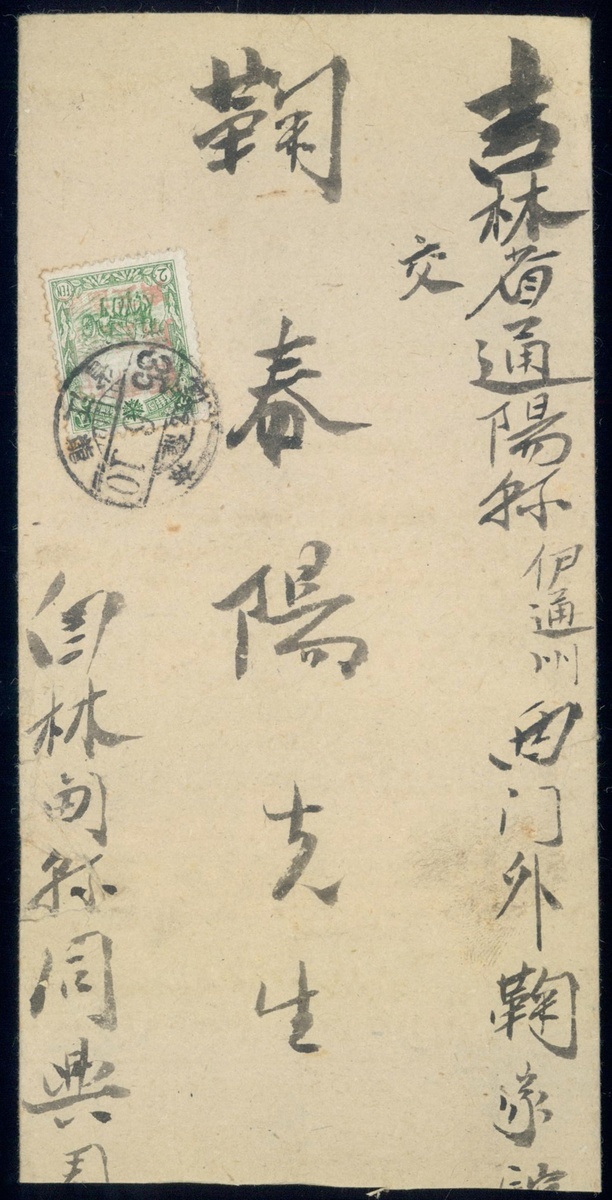 吉林省通陽縣伊通州西门外鞠家
交
鞠春陽先生
自林甸縣同興
2
FEN
35
10